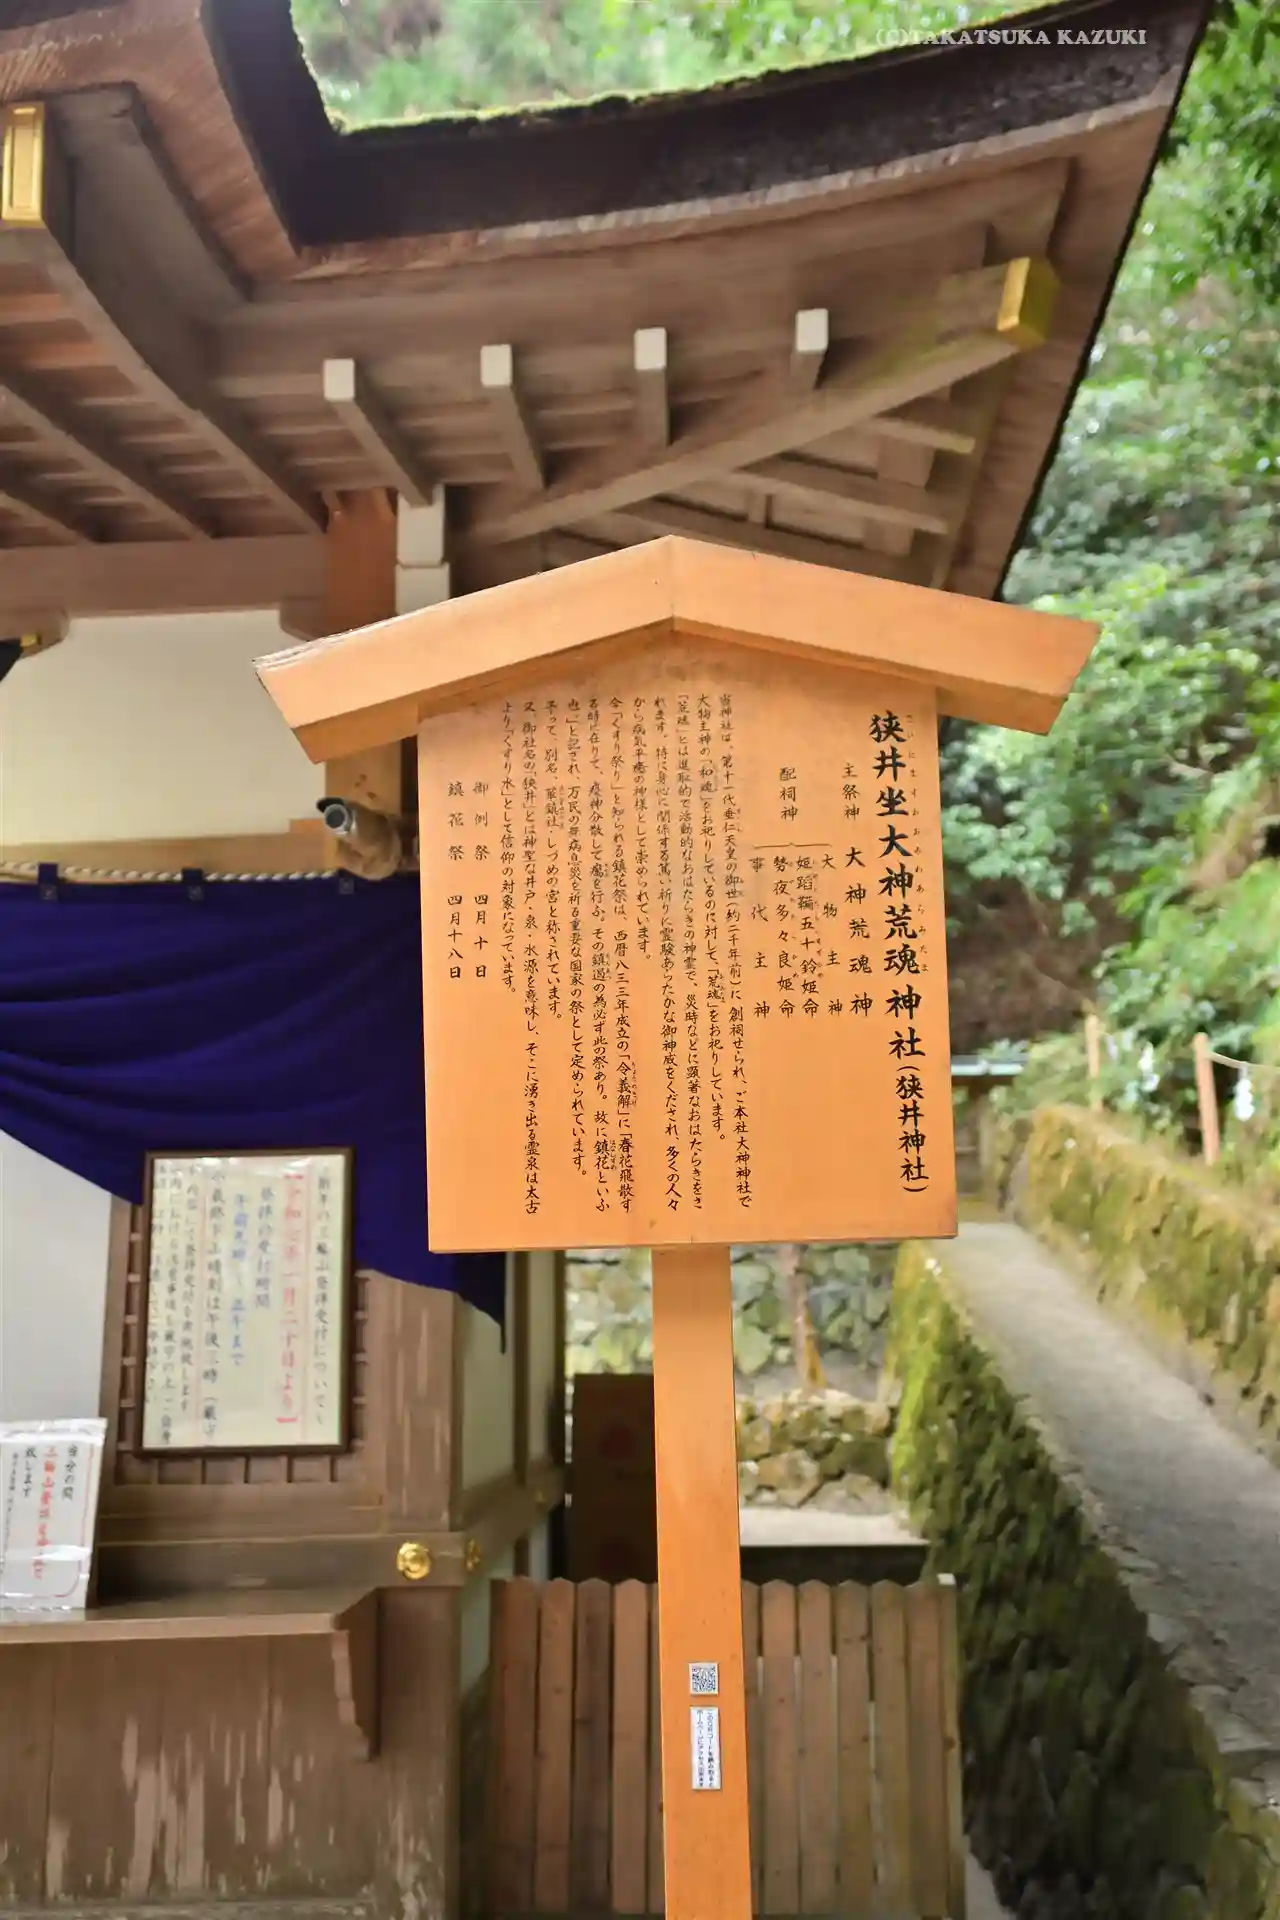 (C)TAKATSUKA KAZUKI
狭井坐大神荒魂神社(狭井神社)
さいにますおおみわあらみたま
主祭神 大神荒魂神
配祠神
大物主神
姫蹈鞴五十鈴姫命
勢夜多々良姫命
事代主神
当神社は、第十一代垂仁天皇の御世(約二千年前)に創祠せられ、ご本社大神神社で
大物主神の「和魂」をお祀りしているのに対して、「荒魂」をお祀りしています。
「荒魂」とは進取的で活動的なおはたらきの神霊で、災時などに顕著なおはたらきをさ
れます。特に身心に関係する篤い祈りに霊験あらたかな御神威をくだされ、多くの人々
から病気平癒の神様として崇められています。
今「くすり祭り」と知られる鎮花祭は、西暦八三三年成立の「令義解」に「春花飛散す
る時に在りて、疫神分散して癘を行ふ。その鎮遏の為必ず此の祭あり。故に鎮花といふ
也。」と記され、万民の無病息災を祈る重要な国家の祭として定められています。
予って、別名、華鎮社・しづめの宮と称されています。
又、御社名の「狭井」とは神聖な井戸・泉・水源を意味し、そこに湧き出る霊泉は太古
より「くすり水」として信仰の対象になっています。
御例祭 四月十日
鎮花祭 四月十八日
新年の三輪山登拝受付について
【令和七年一月二十日より】
登拝の受付時間
午前九時~正午まで
当分の間
三輪山登拝
致します
このQRコードを読み取ると